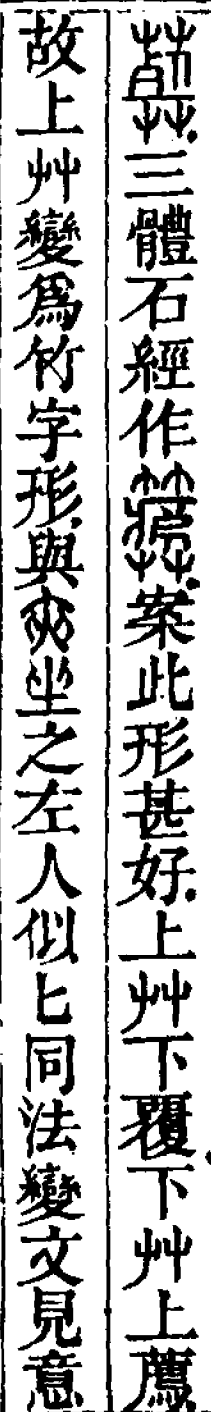 葬三體石經作案此形甚好上艸下覆下艸上薦
故上艸變爲竹字形與坐之左人似匕同法變文見意